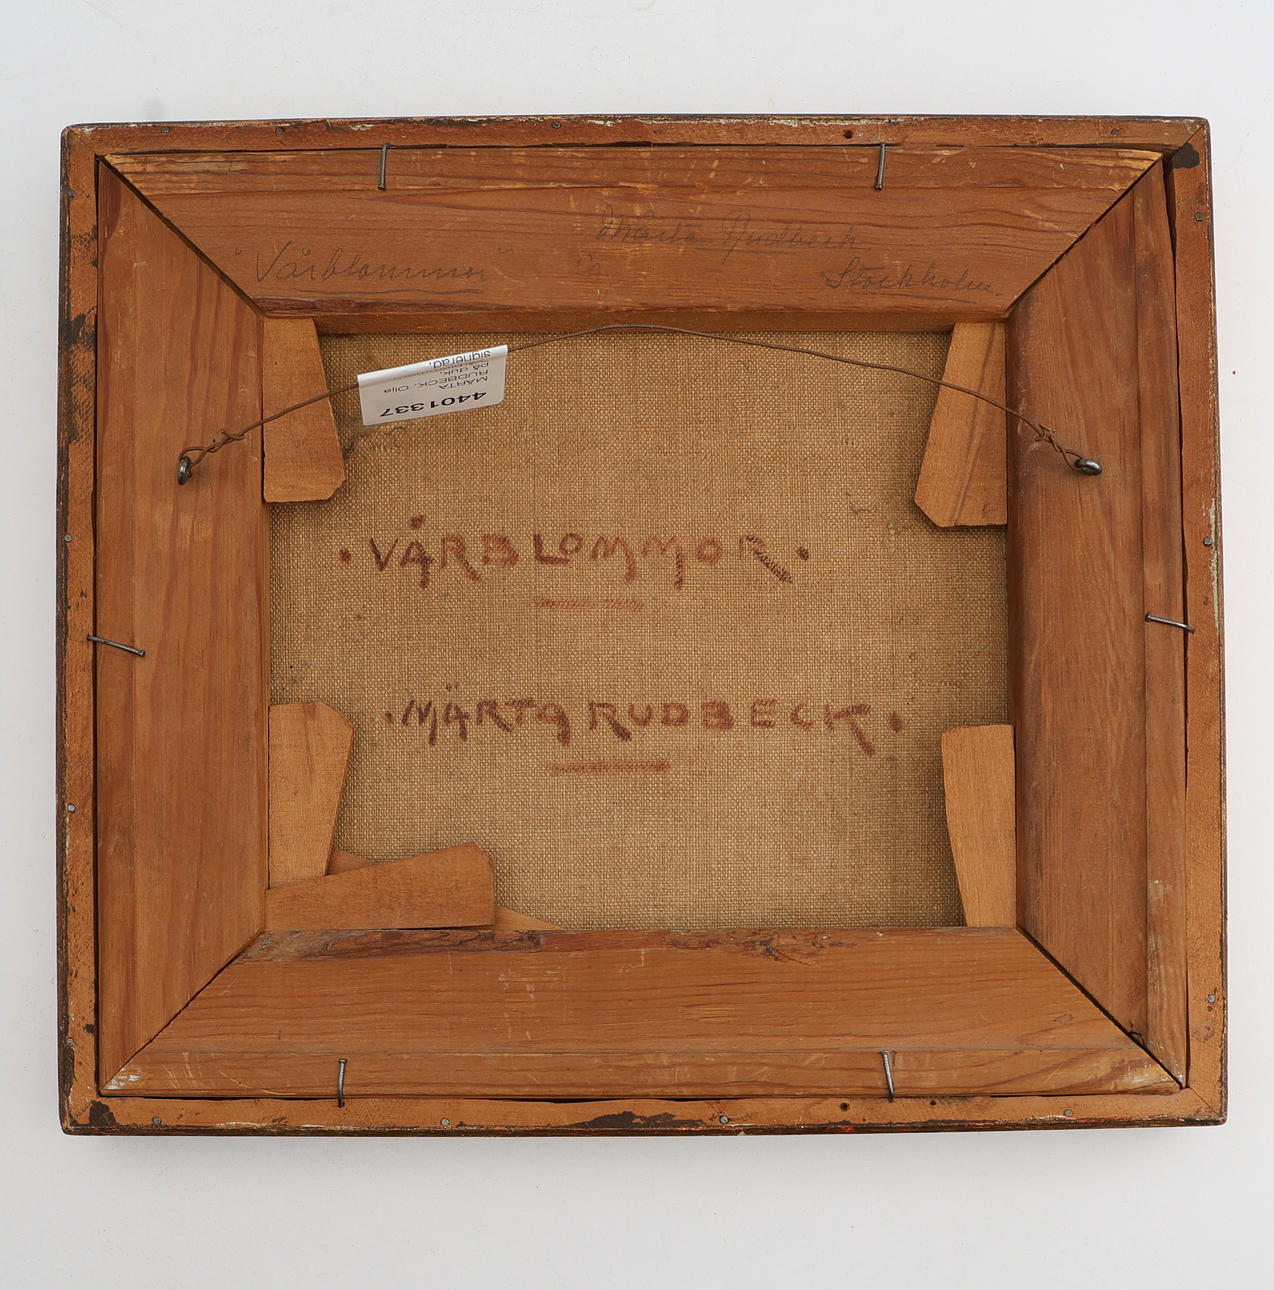 Märta Rudbeck.
"Vårblommor"
Stockholm.
4401337
MÄRTA
RUDBECK. Olja
på duk,
signerad.
·VÅRBLOMMOR·
·MÄRTA RUDBECK·